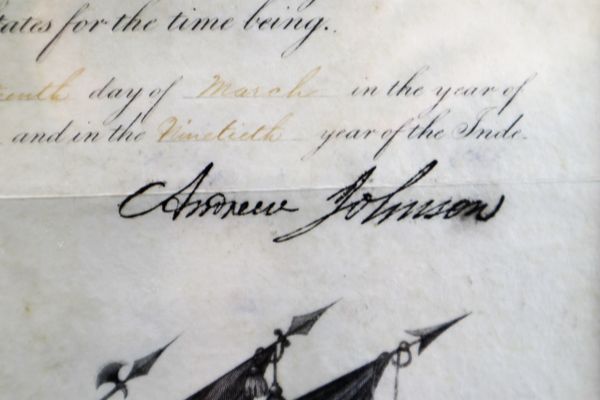 tates for the time being.
day of March in the year of
and in the Ninetieth year of the Inde.
Andrew Johnson